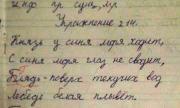 инф. пр. сущ., пр.
Упражнение 214.
Князь у синя моря ходит,
С синя моря глаз не сводит,
Глядь - поверх текучих вод
Лебедь белая плывёт.